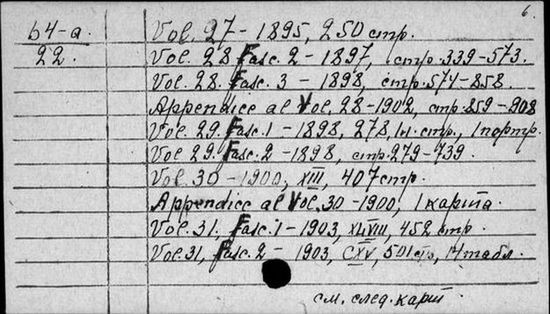 6.
64-a. Vol. 27 - 1895, 250 стр.
22. Vol. 28 Fasc. 2 - 1897, стр. 339-573.
Vol. 28. Fasc. 3 - 1898, стр. 574-858.
Appendice al Vol. 28-1902, стр. 859-908
Vol. 29. Fasc. 1 - 1898, 278, 1 л. стр., 1 портр.
Vol. 29. Fasc. 2 - 1898, стр. 279-739.
Vol. 30 - 1900, XIII, 407 стр.
Appendice al Vol. 30-1900, 1 карта.
Vol. 31. Fasc. 1 - 1903, XLVIII, 452 стр.
Vol. 31, Fasc. 2 - 1903, CXV, 501 стр, 14 табл.
см. след. карт